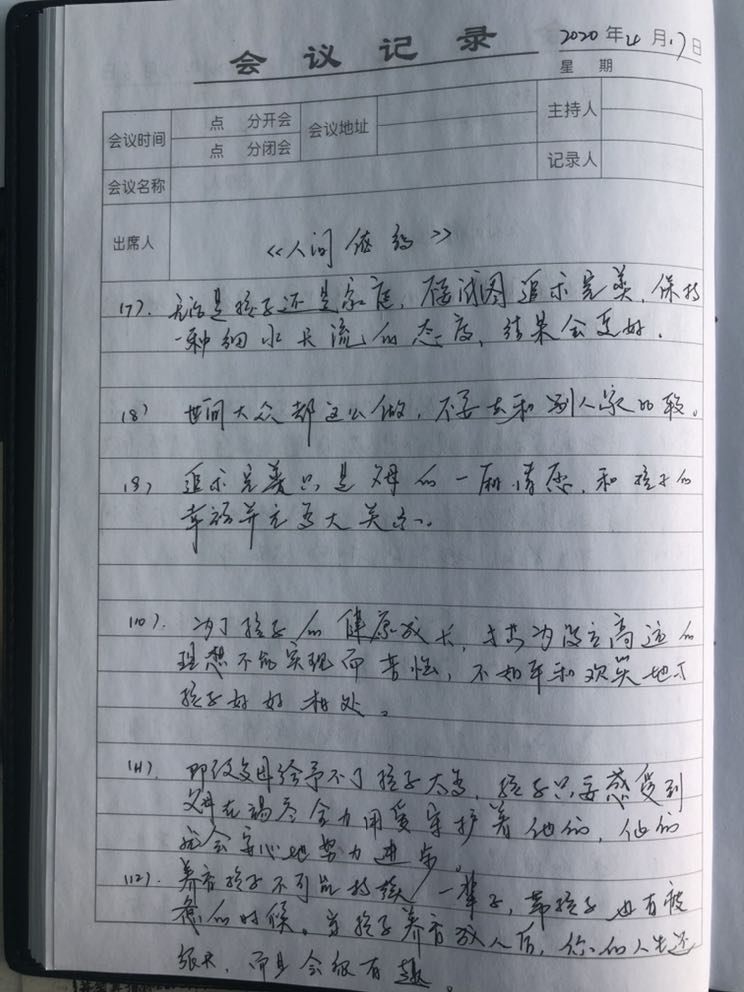 会议记录
2020年4月17日
星 期
会议时间
点 分开会
点 分闭会
会议地址
主持人
记录人
会议名称
出席人
《人间值得》
(7). 无论是孩子还是家庭，不要试图追求完美，保持
一种细水长流的态度，结果会更好.
(8) 世间大众都这么做，不要去和别人家比较。
(9) 追求完美只是父母的一厢情愿，和孩子的
幸福并无多大关系。
(10). 为了孩子的健康成长，与其为设立高远的
理想不能实现而苦恼，不如平和欢笑地与
孩子好好相处。
(11). 即使父母给予不了孩子太多，孩子只要感受到
父母在竭尽全力用爱守护着他们，他们
就会安心地努力进步。
(12). 养育孩子不可能持续一辈子，带孩子也有疲
惫的时候。当孩子养育成人后，你的人生还
很长，而且会很有趣。